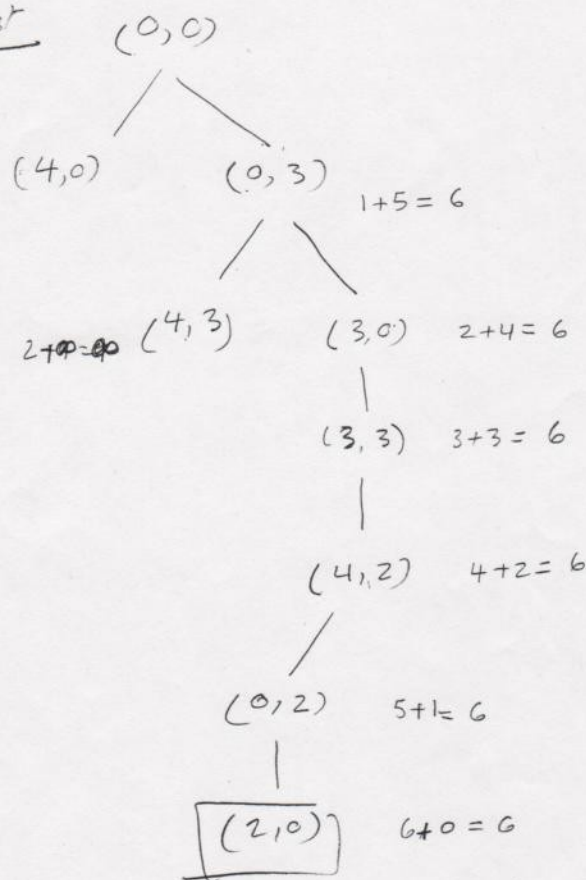 (0,0)
(4,0) (0,3)
1+5= 6
2+∞=∞ (4,3) (3,0) 2+4= 6
(3,3) 3+3= 6
(4,2) 4+2= 6
(0,2) 5+1= 6
(2,0) 6+0 = 6